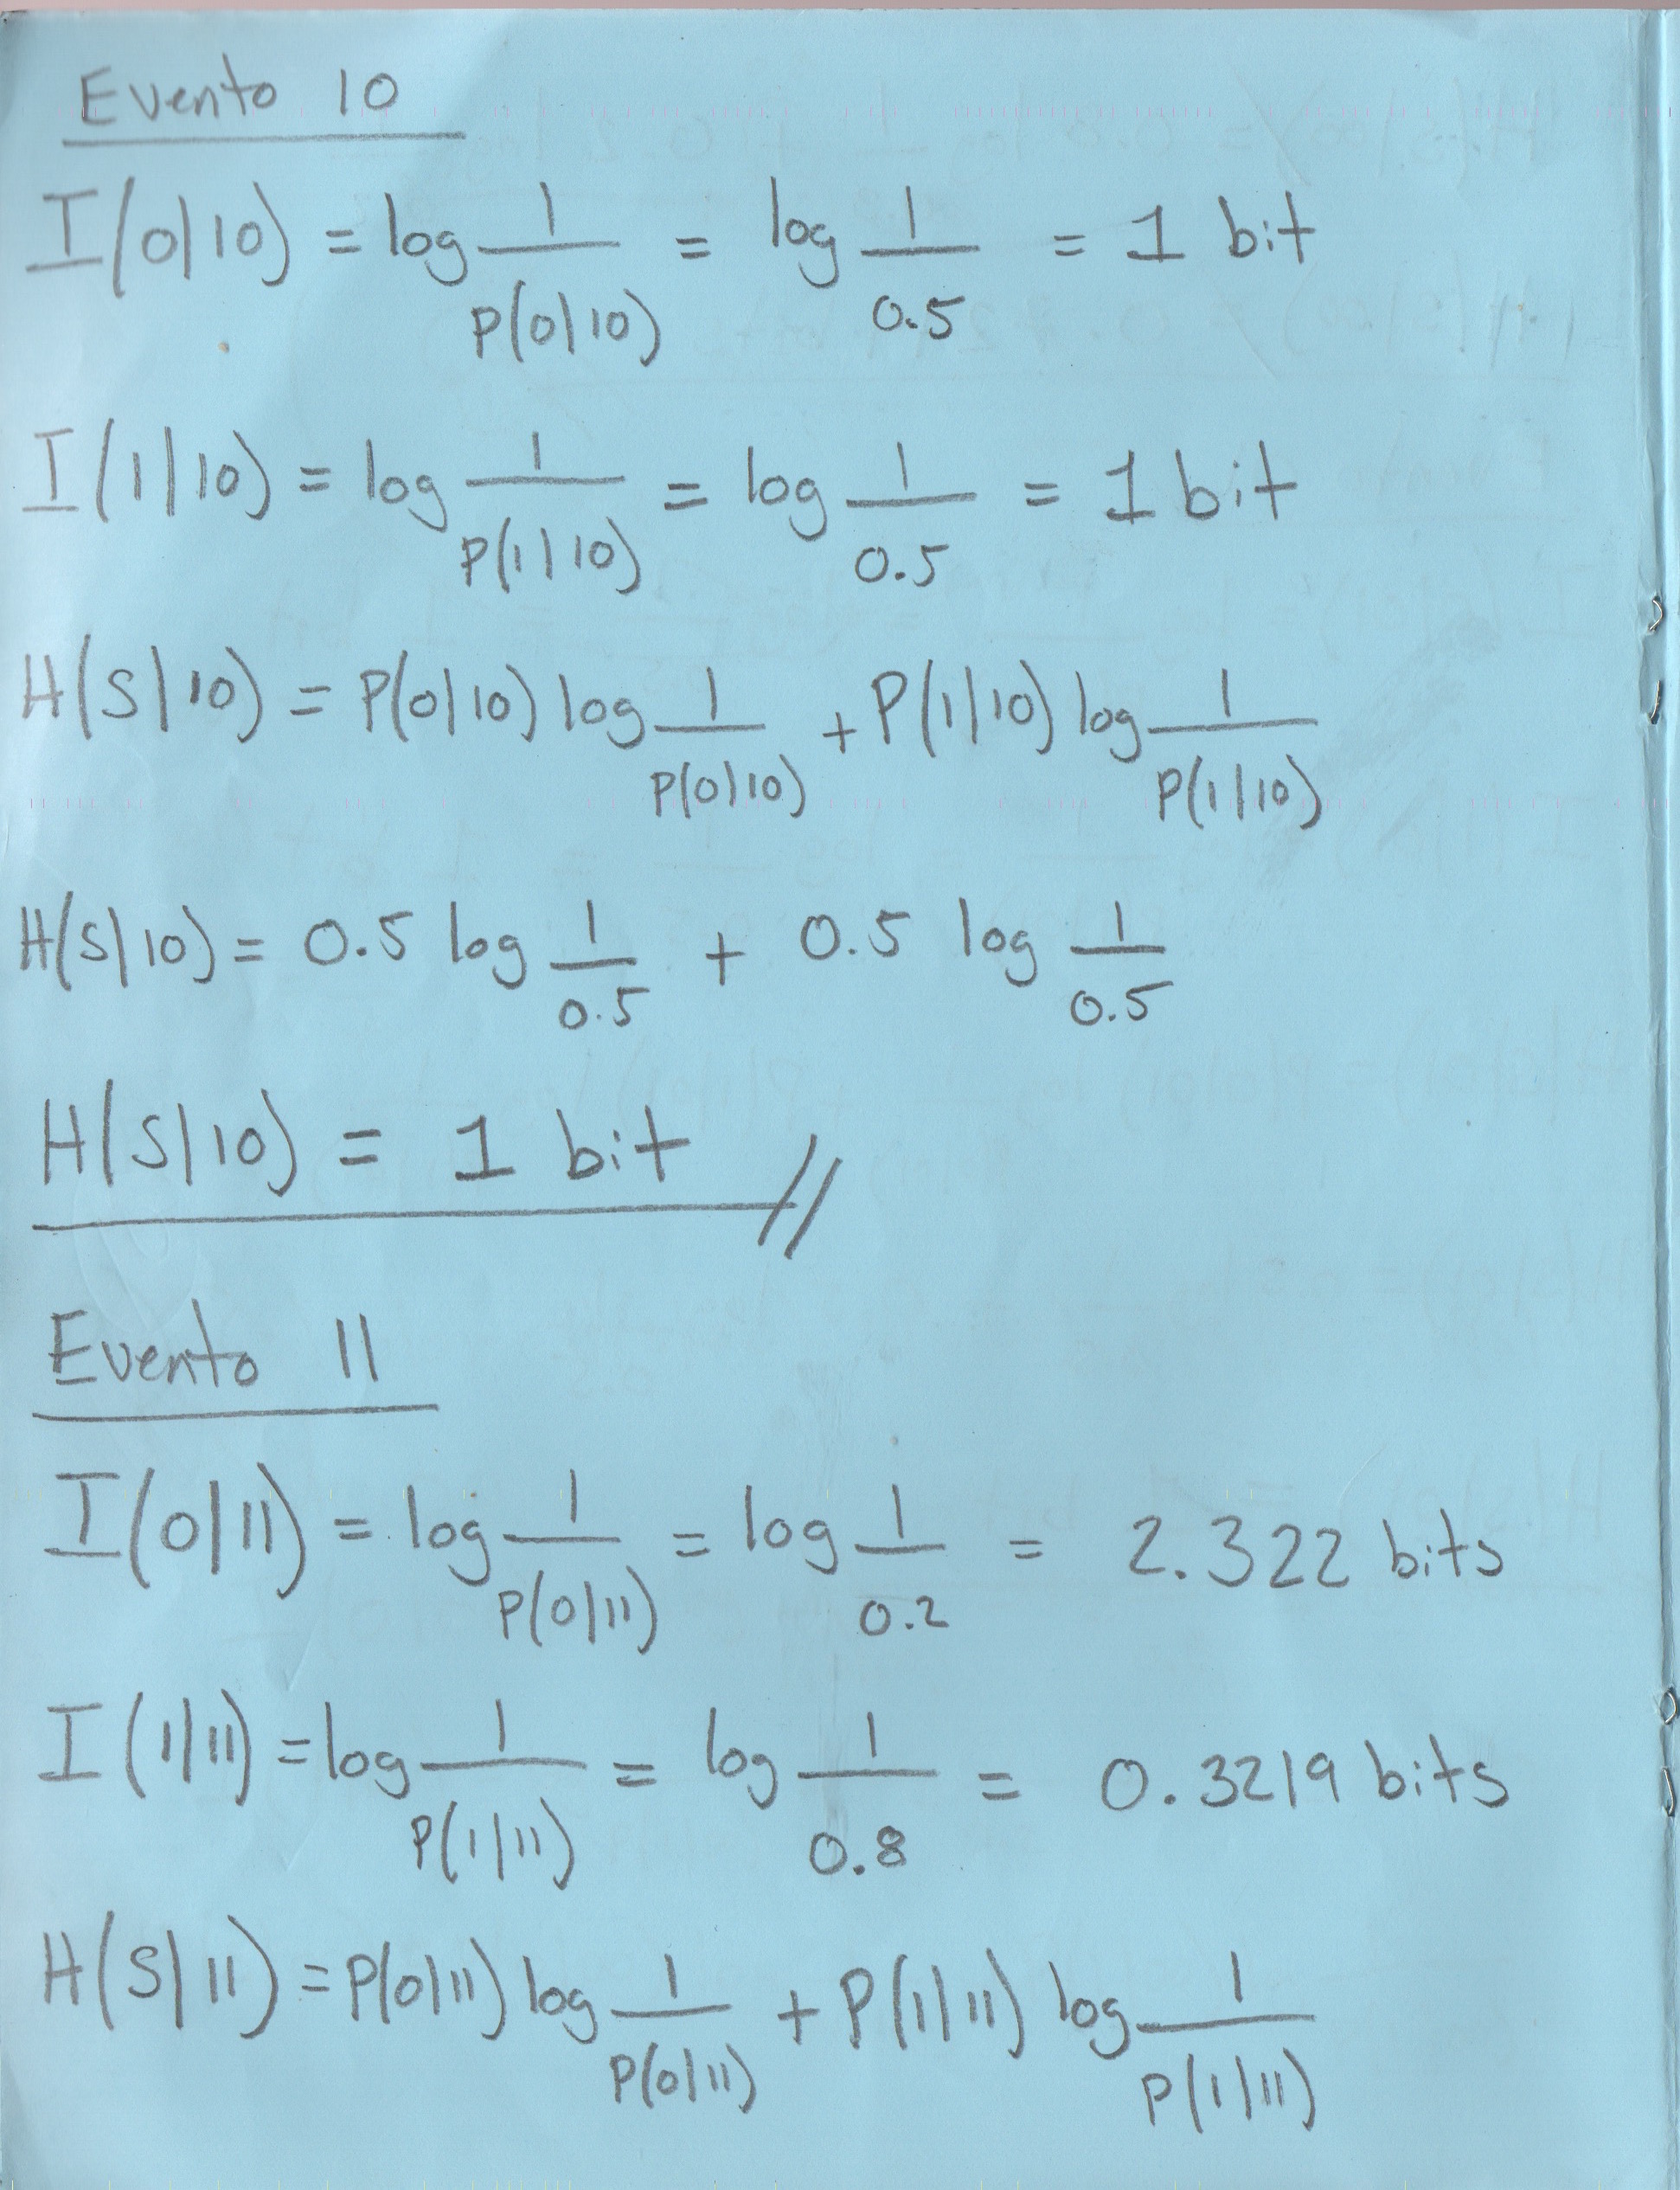 Evento 10
I(0|10) = log 1/P(0|10) = log 1/0.5 = 1 bit
I(1|10) = log 1/P(1|10) = log 1/0.5 = 1 bit
H(S|10) = P(0|10) log 1/P(0|10) + P(1|10) log 1/P(1|10)
H(S|10) = 0.5 log 1/0.5 + 0.5 log 1/0.5
H(S|10) = 1 bit //
Evento 11
I(0|11) = log 1/P(0|11) = log 1/0.2 = 2.322 bits
I(1|11) = log 1/P(1|11) = log 1/0.8 = 0.3219 bits
H(S|11) = P(0|11) log 1/P(0|11) + P(1|11) log 1/P(1|11)